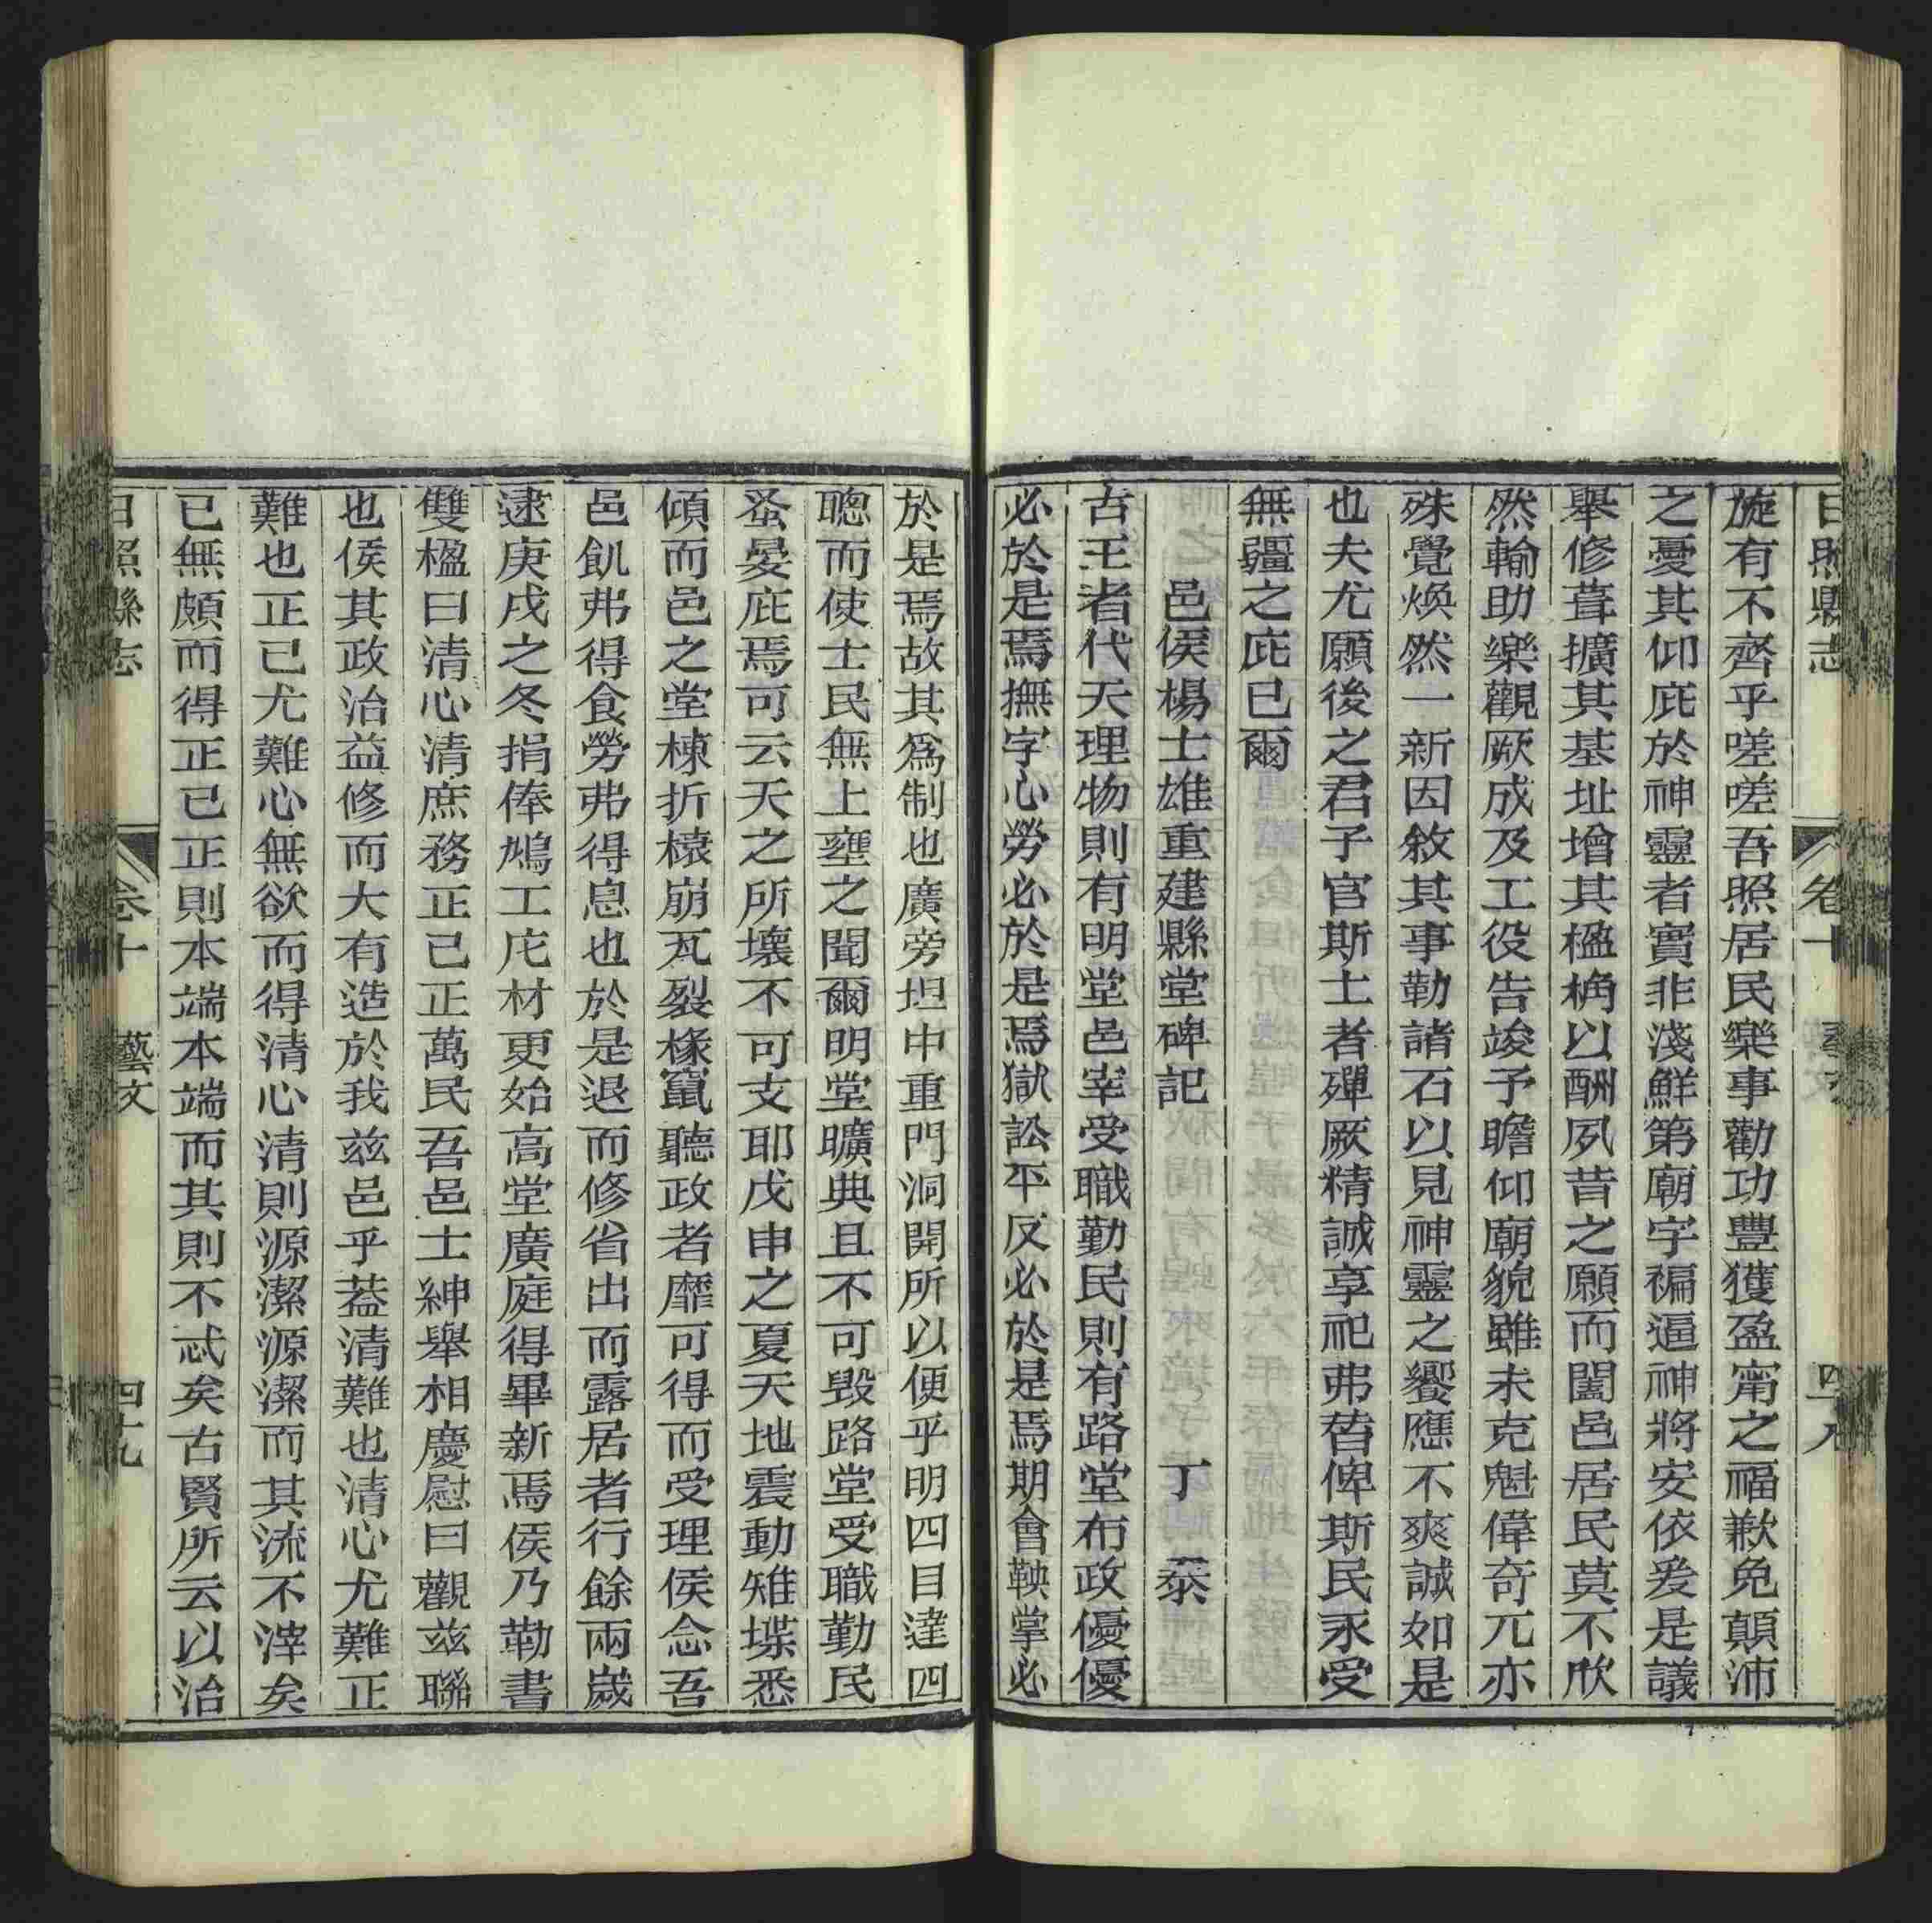 日照縣志 卷十 藝文 四十八
旋有不齊乎嗟嗟吾照居民樂事勸功豐獲盈甯之福歉免顛沛
之憂其仰庇於神靈者實非淺鮮第廟宇褊逼神將安依爰是議
舉修葺擴其基址增其楹桷以酬夙昔之願而闔邑居民莫不欣
然輸助樂觀厥成及工役告竣予瞻仰廟貌雖未克魁偉奇兀亦
殊覺煥然一新因敘其事勒諸石以見神靈之饗應不爽誠如是
也夫尤願後之君子官斯土者殫厥精誠享祀弗替俾斯民永受
無疆之庇已爾
邑侯楊士雄重建縣堂碑記 丁 泰
古王者代天理物則有明堂邑宰受職勤民則有路堂布政優優
必於是焉撫字心勞必於是焉獄訟平反必於是焉期會鞅掌必
於是焉故其為制也廣旁坦中重門洞開所以便乎明四目達四
聰而使士民無上壅之聞爾明堂曠典且不可毀路堂受職勤民
蚤晏庇焉可云天之所壞不可支耶戊申之夏天地震動雉堞悉
傾而邑之堂棟折榱崩瓦裂椽竄聽政者靡可得而受理侯念吾
邑飢弗得食勞弗得息也於是退而修省出而露居者行餘兩歲
逮庚戌之冬捐俸鳩工庀材更始高堂廣庭得畢新焉侯乃勒書
雙楹曰清心清庶務正己正萬民吾邑士紳舉相慶慰曰觀茲聯
也侯其政治益修而大有造於我茲邑乎蓋清難也清心尤難正
難也正已尤難心無欲而得清心清則源潔源潔而其流不滓矣
已無頗而得正已正則本端本端而其則不忒矣古賢所云以治
日照縣志 卷十 藝文 四十九